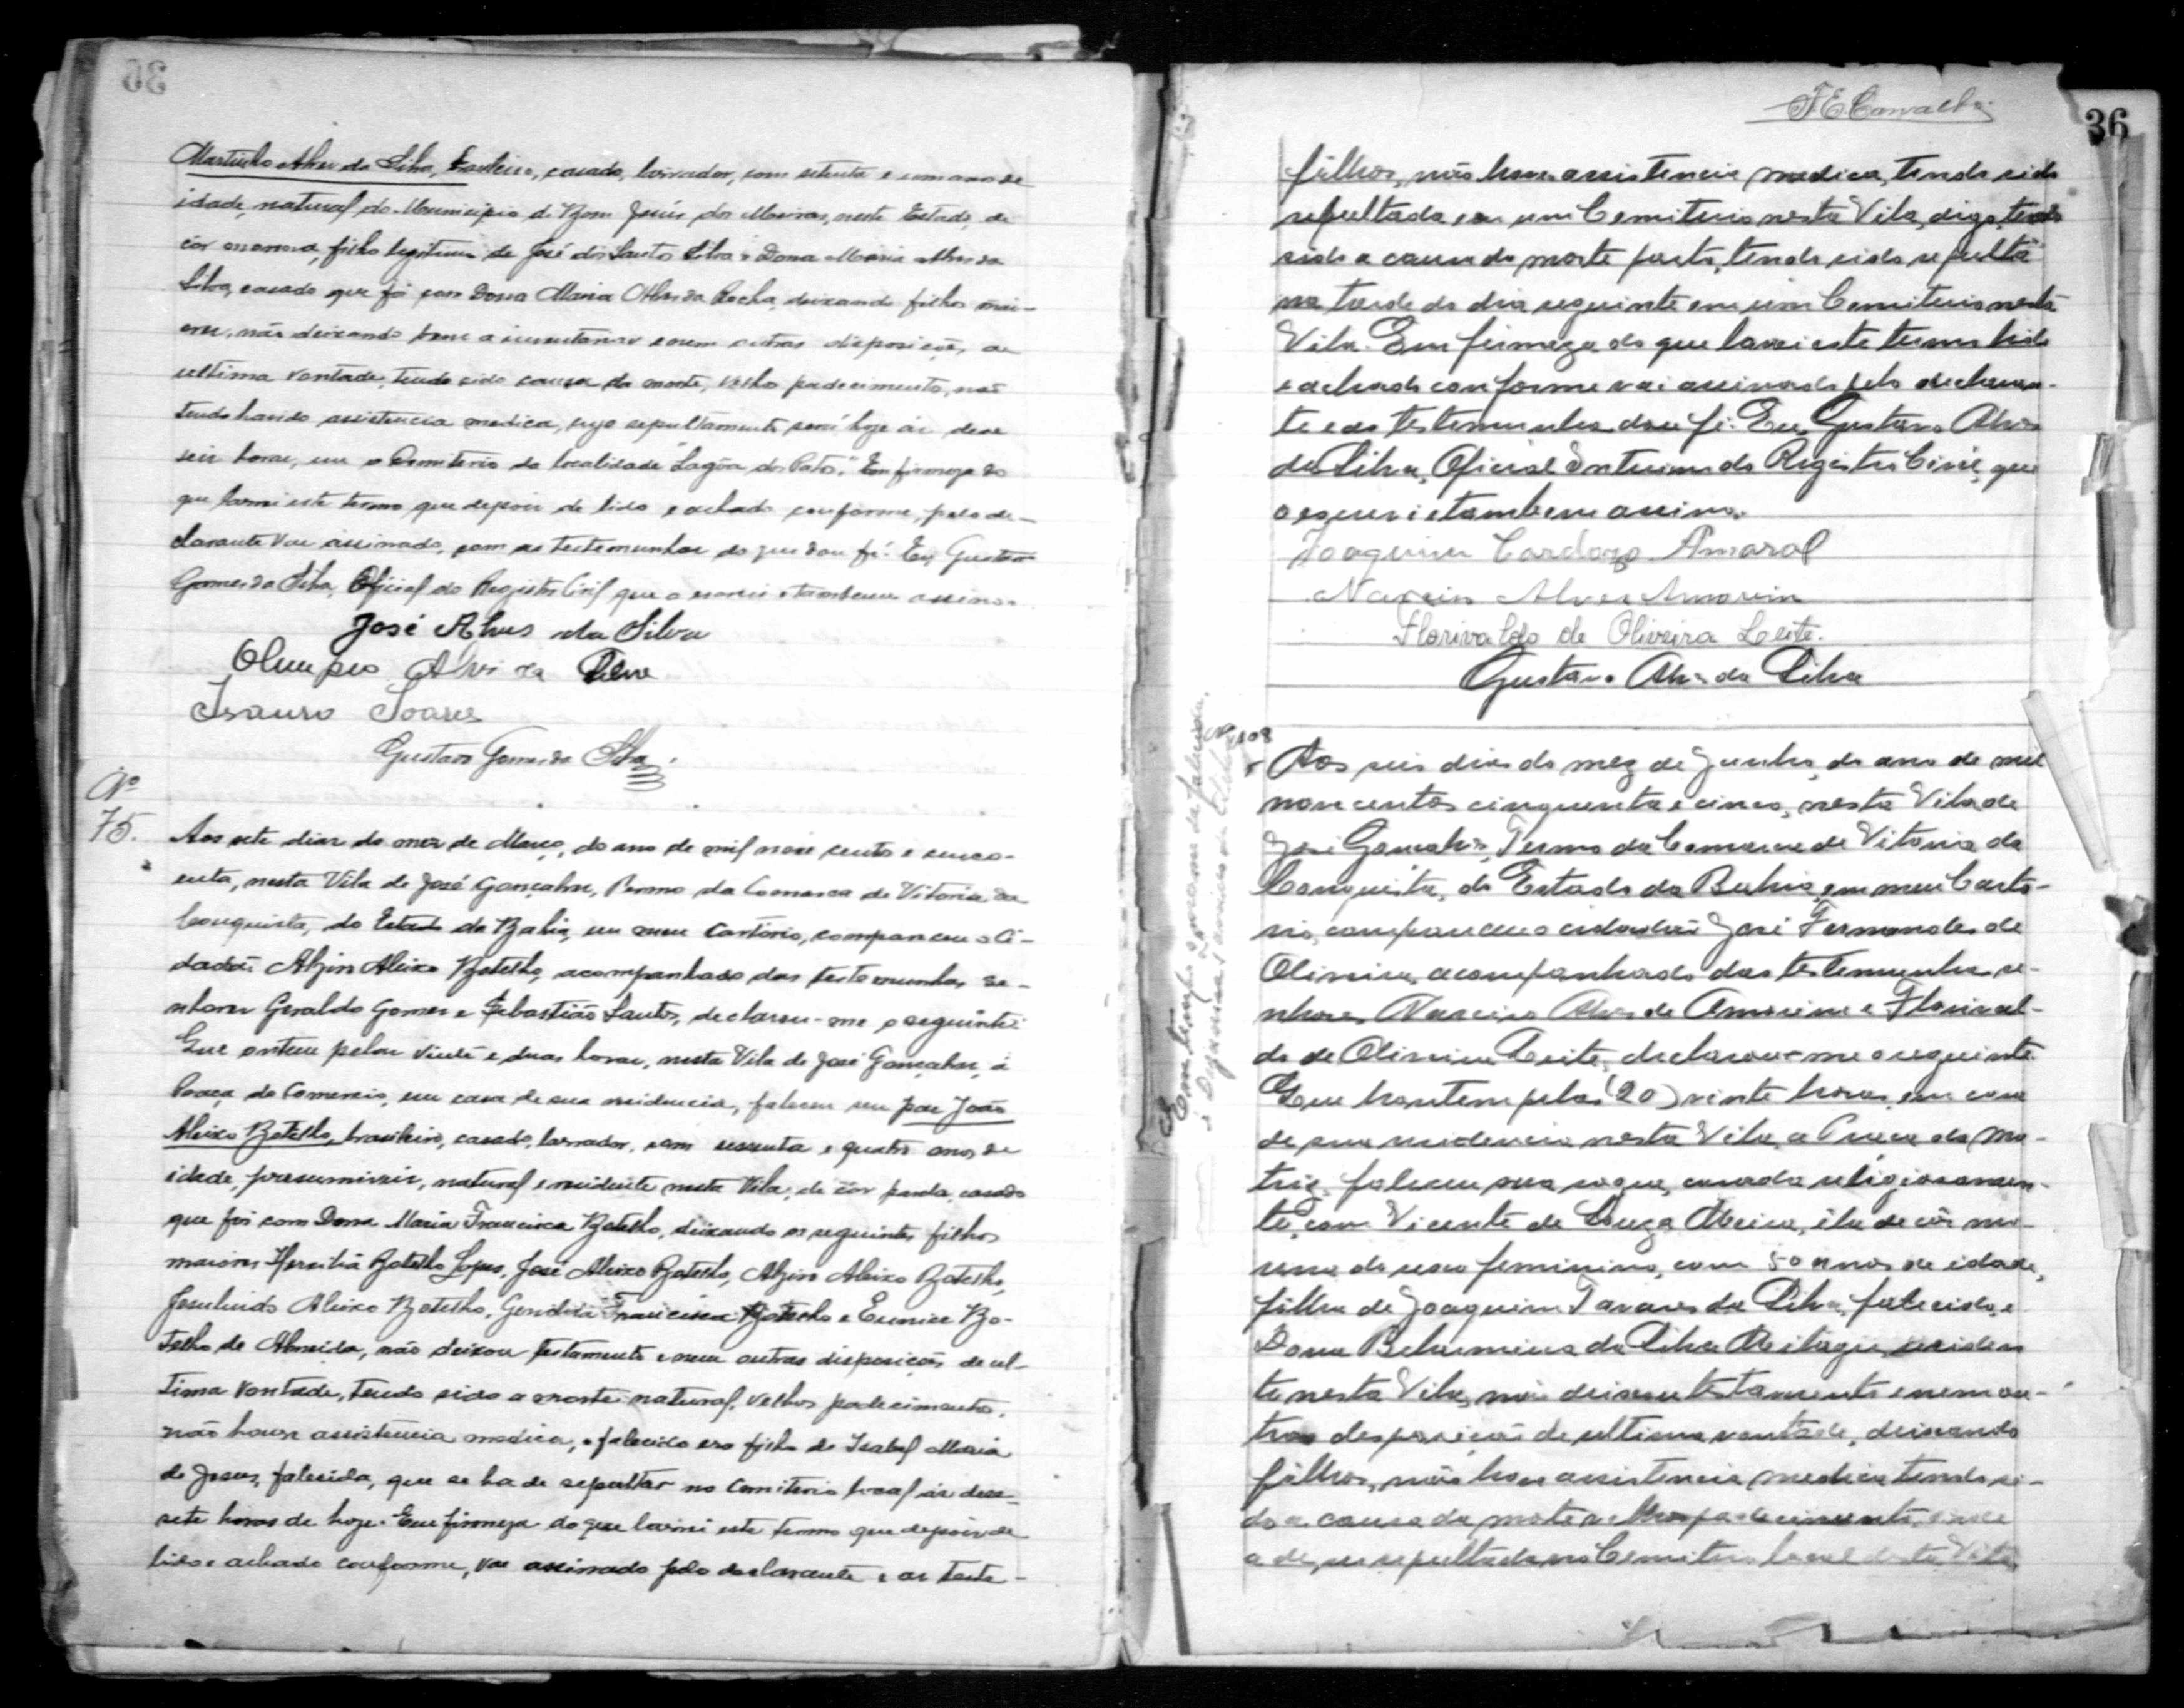 Martinho Alves da Silva, brasileiro, casado, lavrador, com setenta e um anos de
idade, natural do Municipio de Bom Jesús dos Meiras, neste Estado, de
côr morena, filho legitimo de José dos Santos Silva e Dona Maria Alves da
Silva, casado que foi com Dona Maria Alves da Rocha, deixando filhos mai-
ores, não deixando bens a inventariar e nem outras disposições de
ultima vontade, tendo sido causa da morte, velho padecimento, não
tendo havido assistencia medica, cujo sepultamento será hoje ás deze
seis horas, em o Cemiterio da localidade "Lagôa dos Patos." Em firmeza do
que lavrei este termo que depois de lido e achado conforme, pelo de-
clarante vae assinado, com as testemunhas do que dou fé. Eu, Gustavo
Gomes da Silva, Oficial do Registro Civil que o escrevi e tambem assino.
José Alves da Silva
Olimpio Alves da Silva
Isauro Soares
Gustavo Gomes da Silva.
Nº
75.
Aos sete dias do mez de Março, do ano de mil nove cento e cinco-
enta, nesta Vila de José Gonçalves, Termo da Comarca de Vitoria da
Conquista, do Estado da Bahia, em meu Cartório, compareceu o ci-
dadão Alzino Aleixo Botelho, acompanhado das testemunhas se-
nhores Geraldo Gomes e Sebastião Santos, declarou-me o seguinte:
Que ontem pelas vinte e duas horas, nesta Vila de José Gonçalves, á
Praça do Comercio, em casa de sua residencia, faleceu seu pae João
Aleixo Botelho, brasileiro, casado, lavrador, com sessenta e quatro anos de
idade, presumiveis, natural e residente nesta Vila, de côr parda, casado
que foi com Dona Maria Francisca Botelho, deixando os seguintes filhos
maiores Hersilia Botelho Lopes, José Aleixo Botelho, Alzino Aleixo Botelho,
Jesulindo Aleixo Botelho, Francisca Botelho e Eunice Bo-
telho de Almeida, não deixou testamento e nem outras disposições de ul-
tima vontade, tendo sido a morte natural, velhos padecimentos.
não houve assistencia medica, o falecido era filho de Isabel Maria
de Jesus, falecida, que se ha de sepultar no Cemiterio local ás deze-
sete horas de hoje. Em firmeza do que lavrei este termo que depois de
lido e achado conforme, vae assinado pelo declarante e as teste-
F E Carvalho
36
filhos, não houve assistencia medica, tendo sido
sepultada em um Cemiterio nesta Vila, digo, tendo
sido a causa da morte parto, tendo sido sepulta
na tarde do dia seguinte em um Cemiterio nesta
Vila. Em firmeza do que lavrei este termo lido
e achado conforme vai assinado pelo declaran-
te e as testemunhas dou fé. Eu, Gustavo Alves
da Silva, Oficial Interino do Registro Civil, que
o escrevi e tambem assino.
Joaquim Cardozo Amaral
Narcizo Alves Amorim
Florivaldo de Oliveira Leite.
Gustavo Alves da Silva
Em tempo o nome da falecida
Aos seis dias do mez de Junho, do ano de mil
novecentos cinquenta e cinco, nesta Vila de
José Gonçalves, Termo da Comarca de Vitoria da
Conquista, do Estado da Bahia, em meu Carto-
rio, compareceu o cidadão José Fernandes de
Oliveira, acompanhado das testemunhas se-
nhores Narcizo Alves de Amorim e Florival-
do de Oliveira Leite, declarou-me o seguinte:
Que hontem pelas (20) vinte horas, em casa
de sua residencia nesta Vila, a Praça da Ma-
triz, faleceu sua sogra, casada religiosamen-
te, com Vicente de Souza Meira, ela de côr mo-
rena do sexo feminino, com 50 anos de idade,
filha de Joaquim Tavares da Silva, falecido, e
Dona Belarmina da Silva residen
te nesta Vila, não deixou testamento e nem ou-
tras desposição de ultima vontade, deixando
filhos, não houve assistencia medica tendo si-
do a causa da morte velhos padecimento,
a de ser sepultada no Cemiterio local desta Vila,